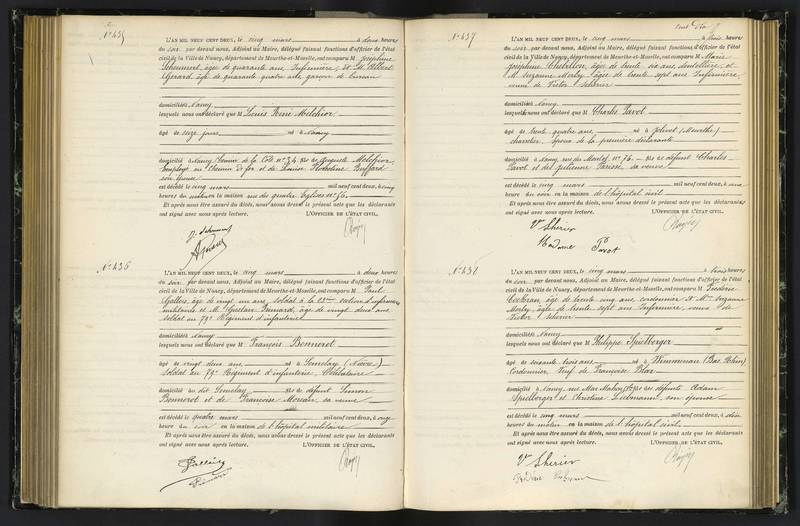 N° 435
L'AN MIL NEUF CENT DEUX, le cinq mars à deux heures
du soir par devant nous, Adjoint au Maire, délégué faisant fonctions d'officier de l'état
civil de la Ville de Nancy, département de Meurthe-et-Moselle, ont comparu M Joséphine
âgée de quarante ans, Infirmière, et M. Albert
Gérard, âgé de quarante quatre ans, garçon de bureau
domiciliés Nancy
lesquels nous ont déclaré que M Louis René Melchior
âgé de seize jours né à Nancy
domicilié à Nancy, Chemin de la Côte n° 34, fils de Auguste Melchior,
employé au Chemin de fer et de Florentine
son épouse
est décédé le cinq mars mil neuf cent deux, à cinq
heures du matin en la maison rue des quatre Eglises n° 36
Et après nous être assuré du décès, nous avons dressé le présent acte que les déclarants
ont signé avec nous après lecture. L'OFFICIER DE L'ÉTAT CIVIL,
N° 436
L'AN MIL NEUF CENT DEUX, le cinq mars à deux heures
du soir par devant nous, Adjoint au Maire, délégué faisant fonctions d'officier de l'état
civil de la Ville de Nancy, département de Meurthe-et-Moselle, ont comparu M Paul
Gallois, âgé de vingt un ans, soldat à la 23me section d'infirmiers
militaires et M. Gustave âgé de vingt deux ans
soldat au 79e Régiment d'infanterie
domiciliés Nancy
lesquels nous ont déclaré que M François Bonnerot
âgé de vingt deux ans, né à Semelay (Nièvre)
soldat au 79e Régiment d'infanterie, Célibataire
domicilié au dit Semelay fils de défunt Simon
Bonnerot et de Françoise Moreau, sa veuve
est décédé le quatre mars mil neuf cent deux, à onze
heures du soir en la maison de l'hôpital militaire
Et après nous être assuré du décès, nous avons dressé le présent acte que les déclarants
ont signé avec nous après lecture. L'OFFICIER DE L'ÉTAT CIVIL,
N° 437
L'AN MIL NEUF CENT DEUX, le cinq mars à trois heures
du soir par devant nous, Adjoint au Maire, délégué faisant fonctions d'officier de l'état
civil de la Ville de Nancy, département de Meurthe-et-Moselle, ont comparu M Marie
Joséphine âgée de trente six ans, dentellière, et
M Suzanne Morly, âgée de trente sept ans, Infirmière,
veuve de Victor
domiciliés Nancy
lesquels nous ont déclaré que M Charles Pavot
âgé de trente quatre ans, né à Jolivet (Meurthe)
charretier, époux de la première déclarante
domicilié à Nancy, rue du n° 76 fils de défunt Charles
Pavot et de Julienne Parisse, sa veuve
est décédé le cinq mars mil neuf cent deux, à une
heure du soir en la maison de l'hôpital civil
Et après nous être assuré du décès, nous avons dressé le présent acte que les déclarants
ont signé avec nous après lecture. L'OFFICIER DE L'ÉTAT CIVIL,
Madame Pavot
N° 438
L'AN MIL NEUF CENT DEUX, le cinq mars à trois heures
du soir par devant nous, Adjoint au Maire, délégué faisant fonctions d'officier de l'état
civil de la Ville de Nancy, département de Meurthe-et-Moselle, ont comparu M
âgé de trente cinq ans, cordonnier et Me Suzanne
Morly, âgée de trente sept ans, Infirmière, veuve de
Victor
domiciliés Nancy
lesquels nous ont déclaré que M Philippe Spielberger
âgé de soixante trois ans, né à (Bas Rhin)
Cordonnier, Veuf de Françoise
domicilié à Nancy, rue Mac Mahon fils de défunts Adam
Spielberger et Christine son épouse
est décédé le cinq mars mil neuf cent deux, à dix
heures du matin en la maison de l'hôpital civil
Et après nous être assuré du décès, nous avons dressé le présent acte que les déclarants
ont signé avec nous après lecture. L'OFFICIER DE L'ÉTAT CIVIL,